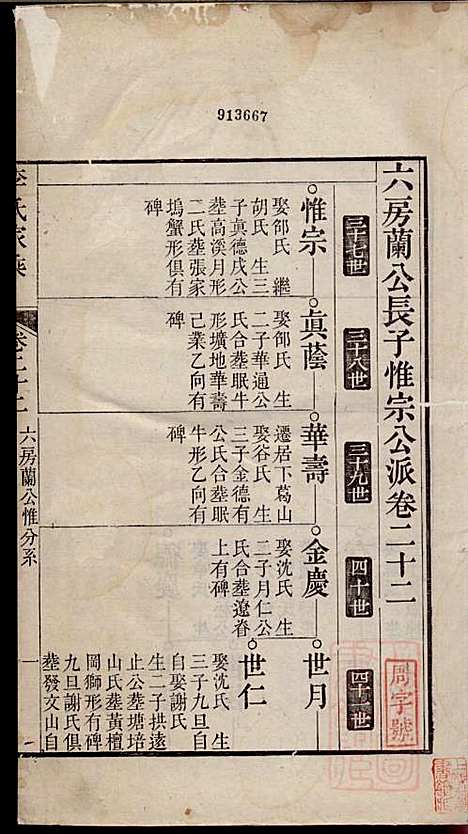 913667
六房蘭公長子惟宗公派卷二十二
三十七世
三十八世
三十九世
四十世
四十一世
惟宗
娶邰氏 繼
胡氏 生三
子眞德戌公
塟高溪月形
二氏塟張家
塢蟹形俱有
碑
眞蔭
娶邰氏 生
二子華通公
氏合塟眠牛
形壙地華壽
己業乙向有
碑
華壽
遷居下葛山
娶谷氏 生
三子金德有
公氏合塟眠
牛形乙向有
碑
金慶
娶沈氏 生
二子月仁公
氏合塟遼眷
上有碑
世月
世仁
娶沈氏 生
三子九旦自
自娶謝氏
生二子拱遠
止公塟塘培
山氏塟黃檀
岡獅形有碑
九旦謝氏俱
塟發文山自
李氏家乘
卷二十二
六房蘭公惟分系
一
周字號